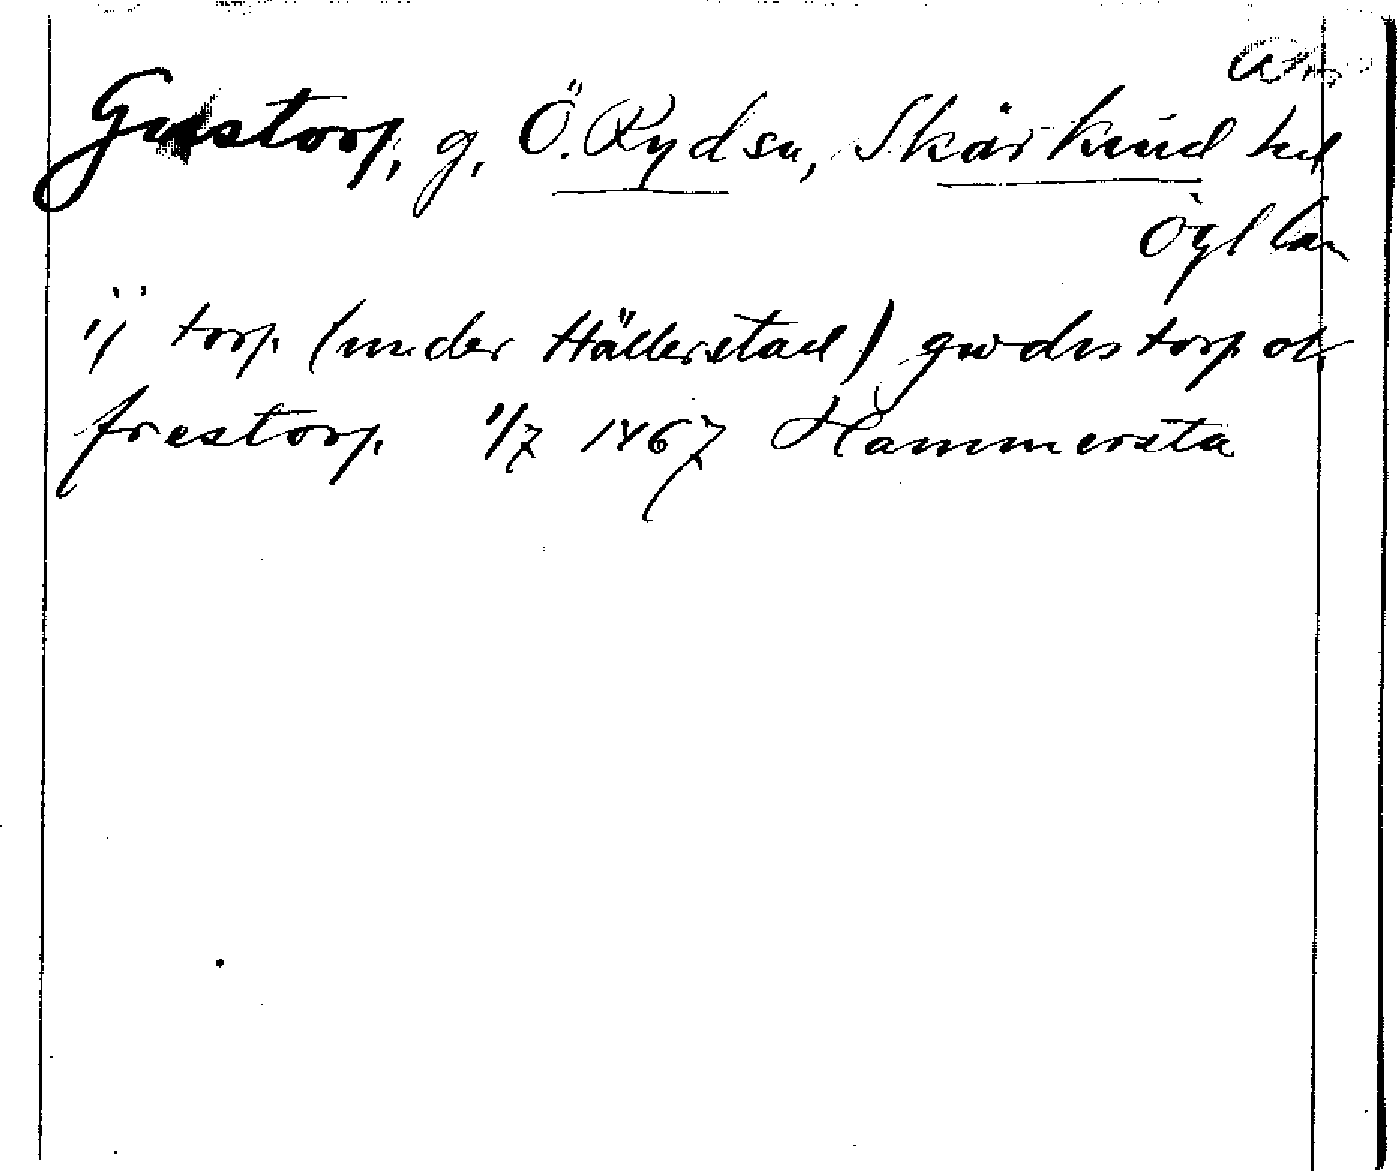 Gustorp, g, Ö. Ryd sn, Skärkind hd
Ögl län
ij torp (under Hällerstad) gwdistorp ok
frestorp 1/7 1467 Hammersta